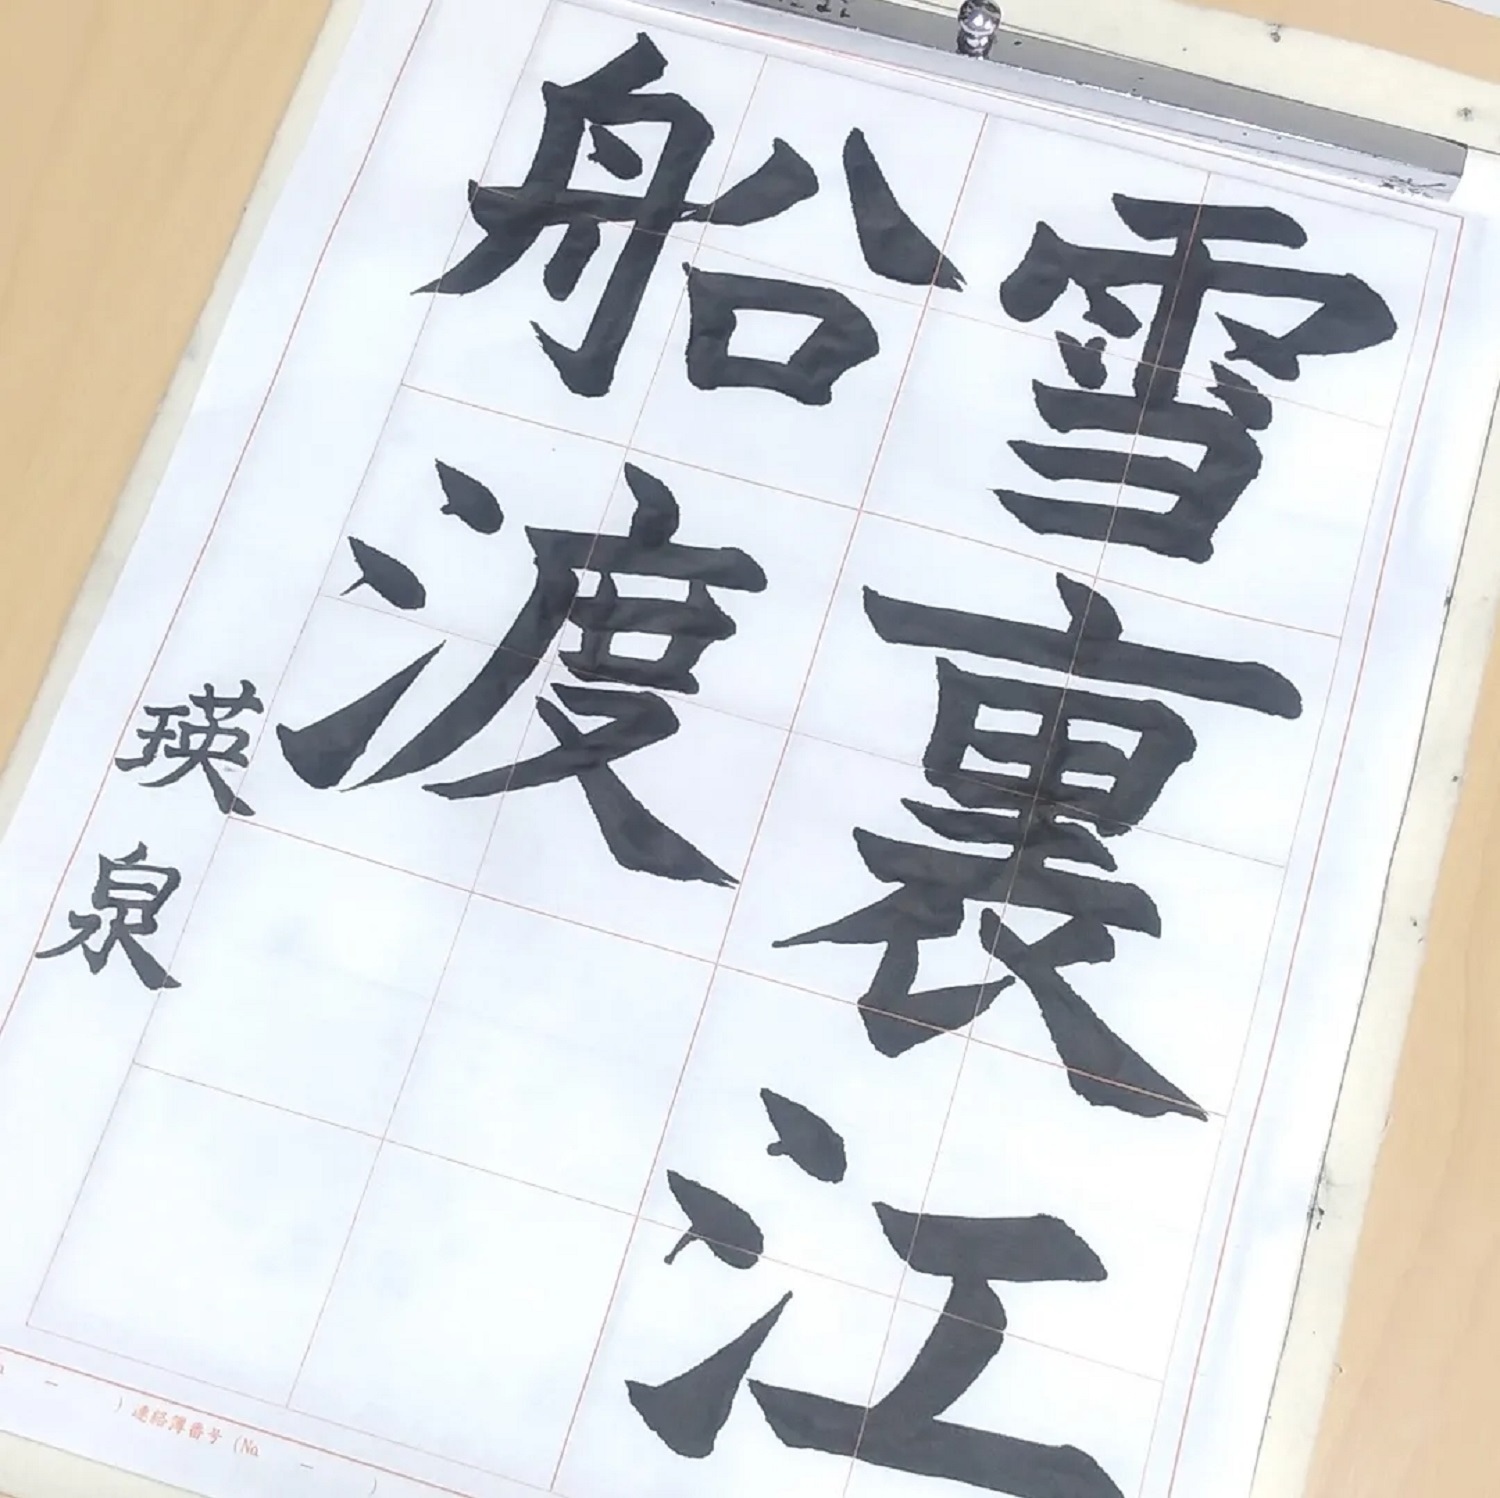 雪裏江
船渡
瑛泉
）連絡簿番号（No　－　）